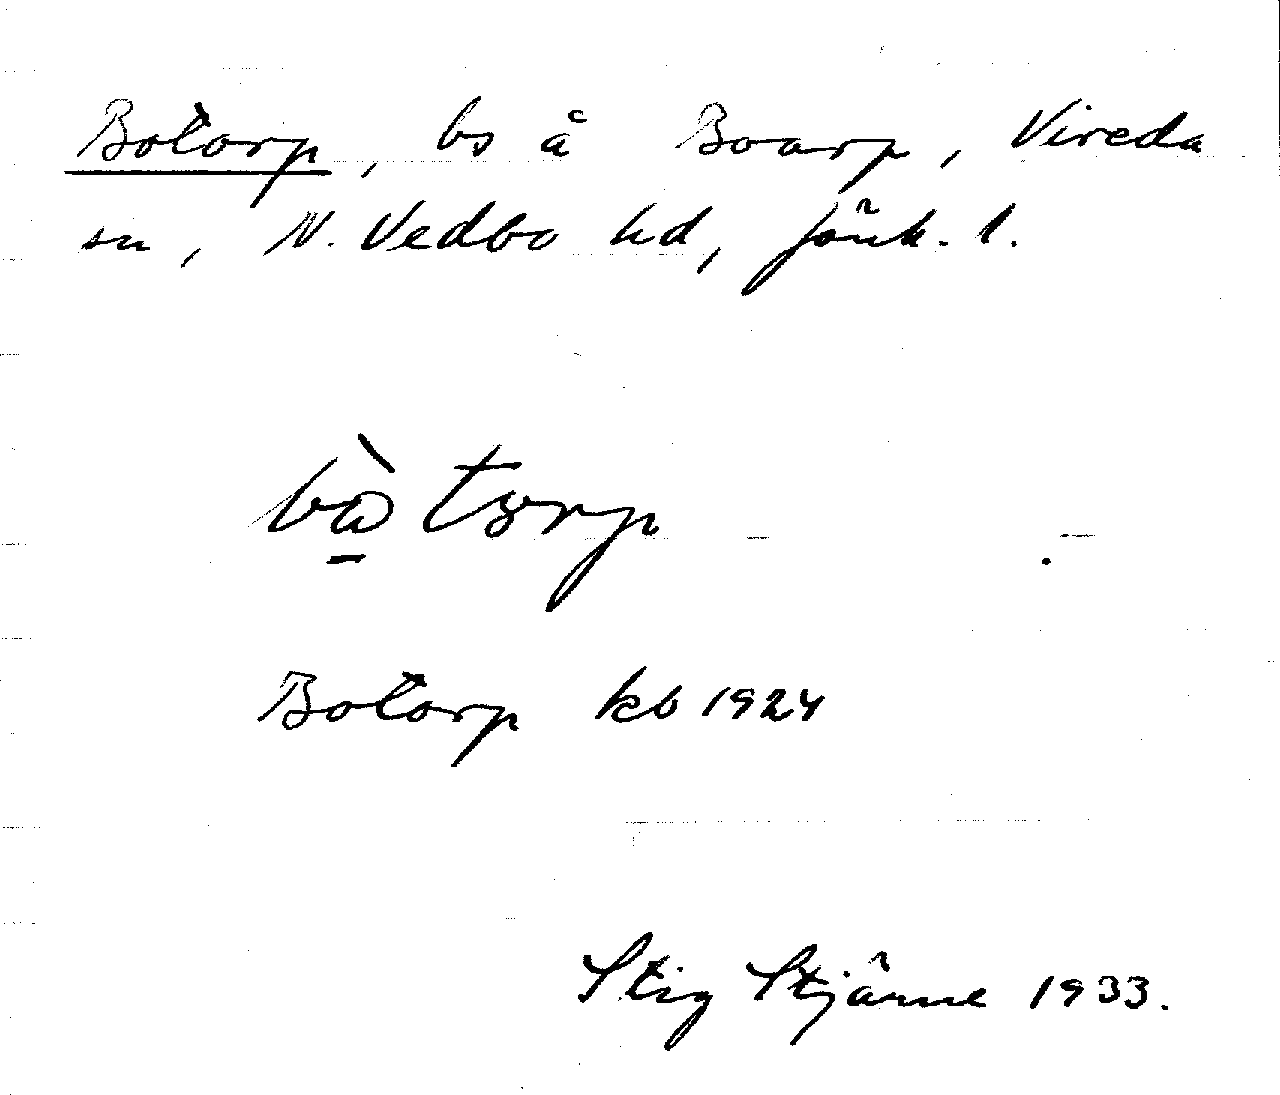 Botorp, bs å Boarp, Vireda
sn, N. Vedbo hd, Jönk. l.
Botorp kb 1924
Stig Stjärne 1933.